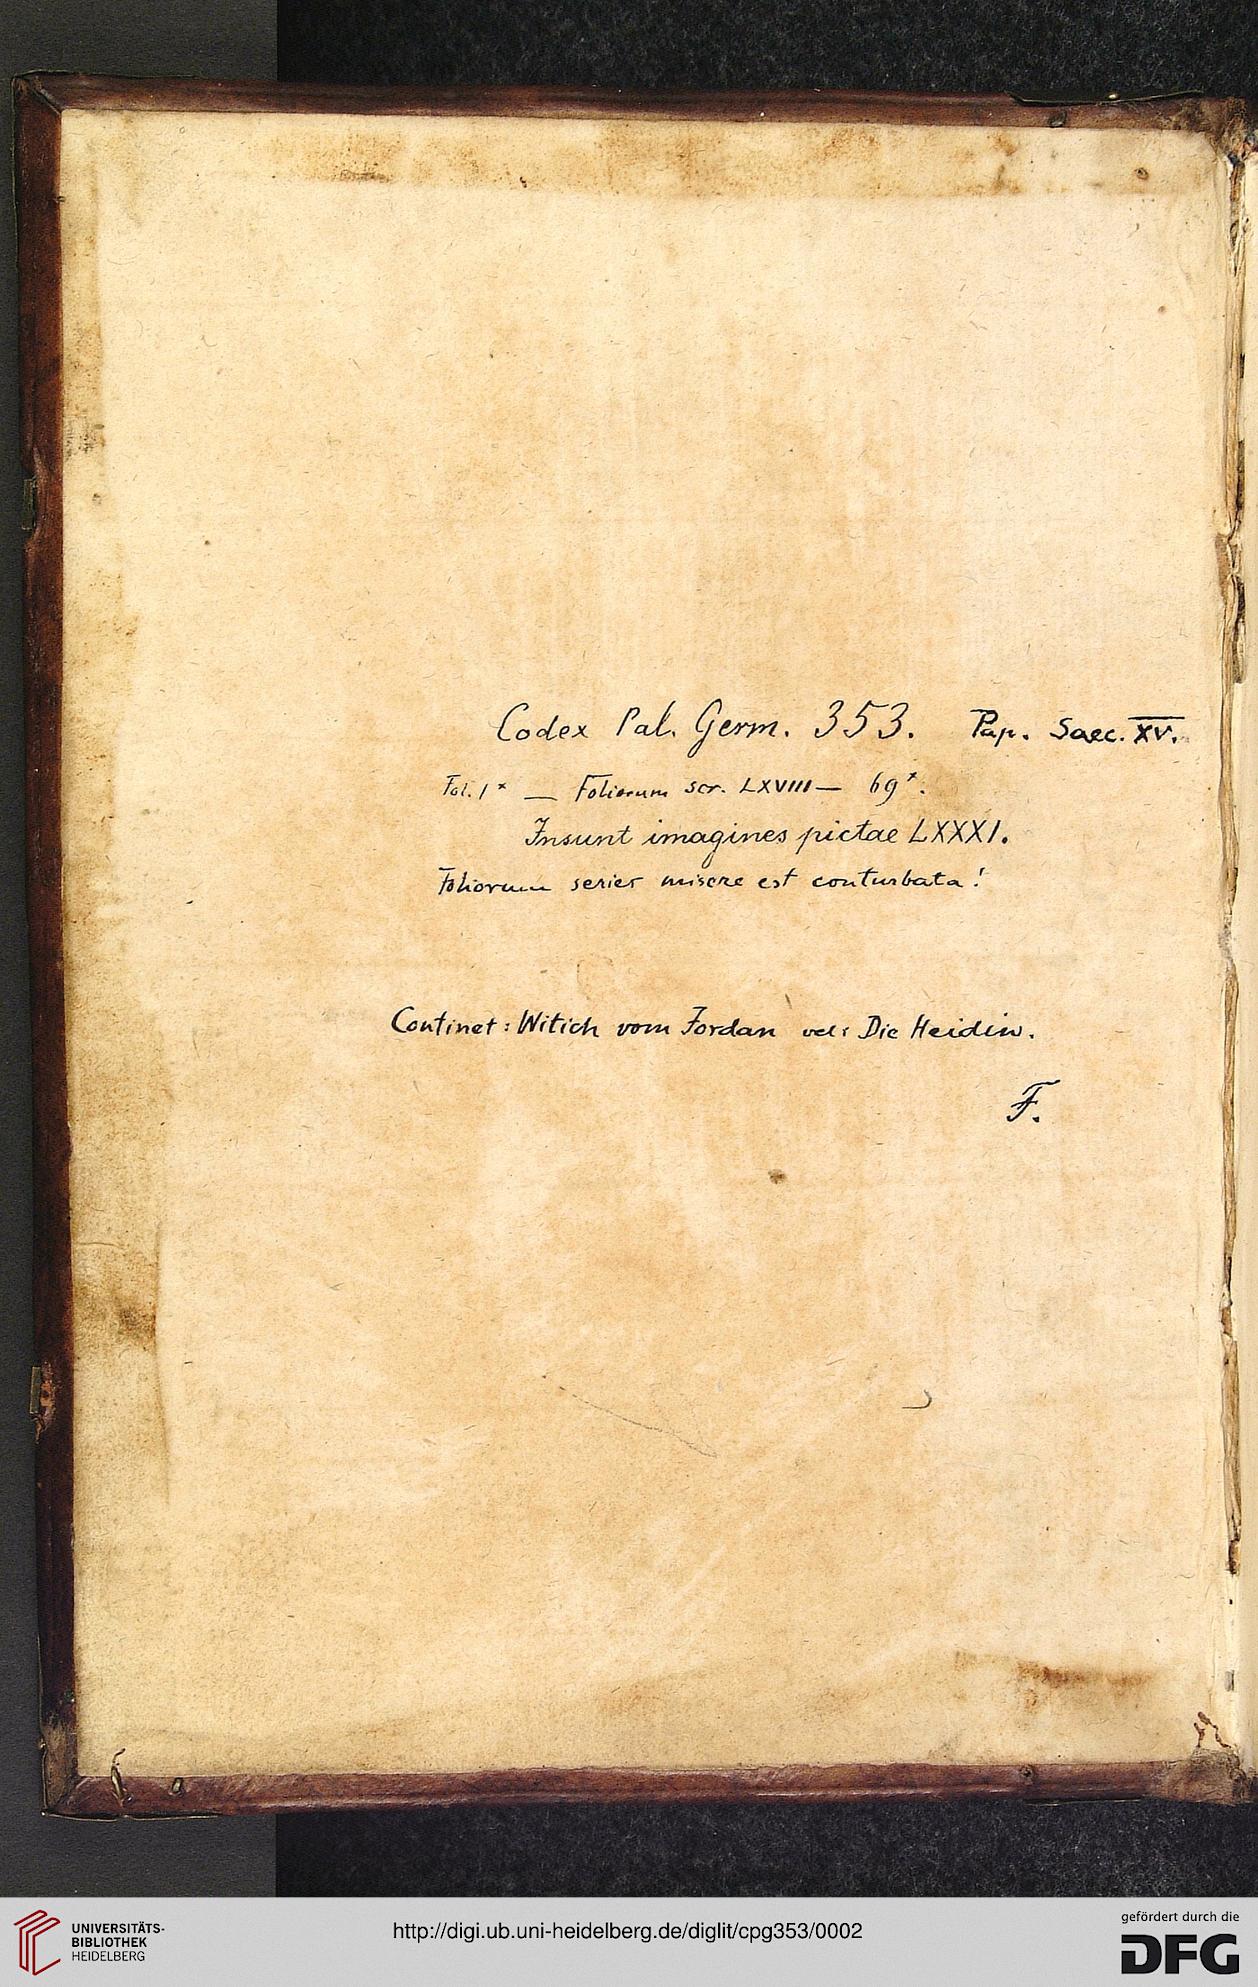 Codex Pal. Germ. 353. Pap. Saec. XV.
Fol. 1* — Foliorum scr. LXVIII — 69*.
Insunt imagines pictae LXXXI.
Foliorum series misere est conturbata!
Continet: Witich vom Jordan vel: Die Heidin.
F.
UNIVERSITÄTS-
BIBLIOTHEK
HEIDELBERG
http://digi.ub.uni-heidelberg.de/diglit/cpg353/0002
gefördert durch die
DFG